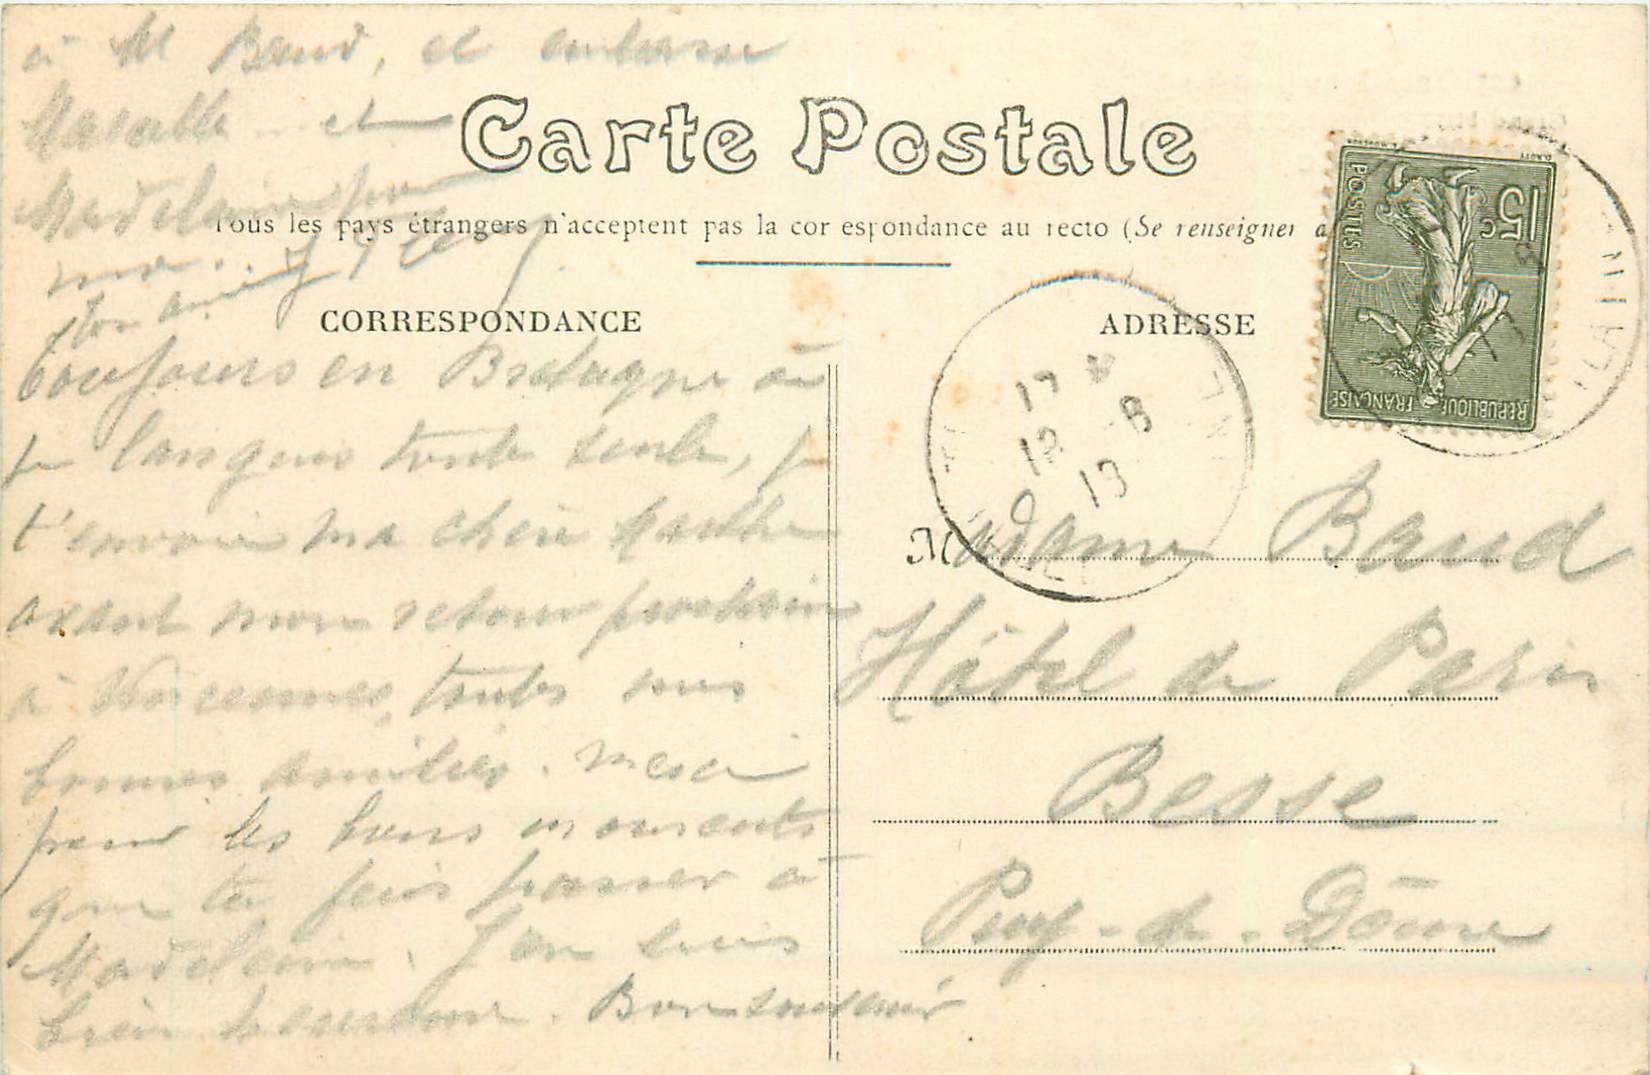 Carte Postale
Tous les pays étrangers n'acceptent pas la correspondance au recto (Se renseigner a
CORRESPONDANCE
Toujours en Bretagne où
je languis toute seule, je
t'envoie ma chère Marthe
avant mon retour prochain
à Vincennes, toutes mes
bonnes amitiés. Merci
pour les bons moments
que tu fais passer à
Madeleine. J'en suis
bien heureuse. Bon souvenir
à M Baud, et embrasse
et
Madeleine pour
moi.
Ton amie
ADRESSE
Madame Baud
Hôtel de Paris
Besse
Puy-de-Dôme
15 c
POSTES
REPUBLIQUE FRANÇAISE
12 8
13